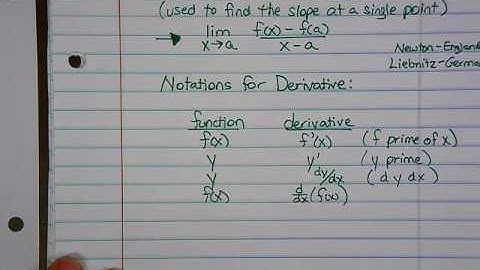 (used to find the slope at a single point)
→ lim x→a f(x) - f(a) / x - a
Newton-England
Liebnitz-German
Notations for Derivative:
function derivative
f(x) f'(x) (f prime of x)
y y' (y prime)
y dy/dx (dy dx)
f(x) d/dx (f(x))